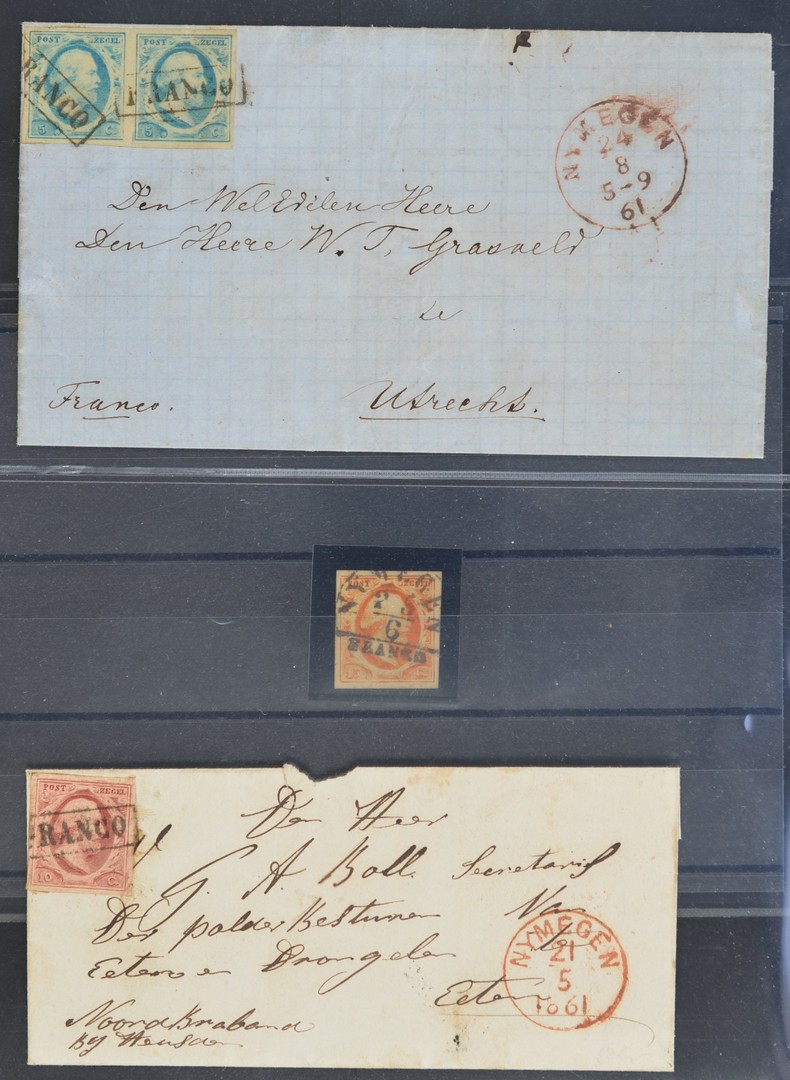 POST ZEGEL POST ZEGEL
RANCO FRANCO
5 C. 5 C.
NYMEGEN
24
8
5-9
61
Den WelEdelen Heere
Den Heere W. T. Grasveld
te
Franco. Utrecht.
NYMEGEN
POST ZEGEL
2
6
FRANCO
POST ZEGEL
RANCO
10 C.
Den Heer
G. A. Boll. Secretaris
Der polder Besturen Van
Eeten en Drongelen
Eeten
NoordBraband
By Heusden
NYMEGEN
21
5
1861